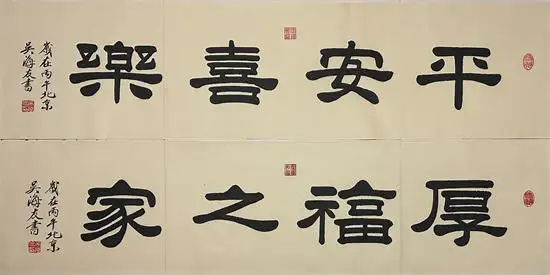 平安喜樂
歲在丙午北京
吴海友書
厚福之家
歲在丙午北京
吴海友書